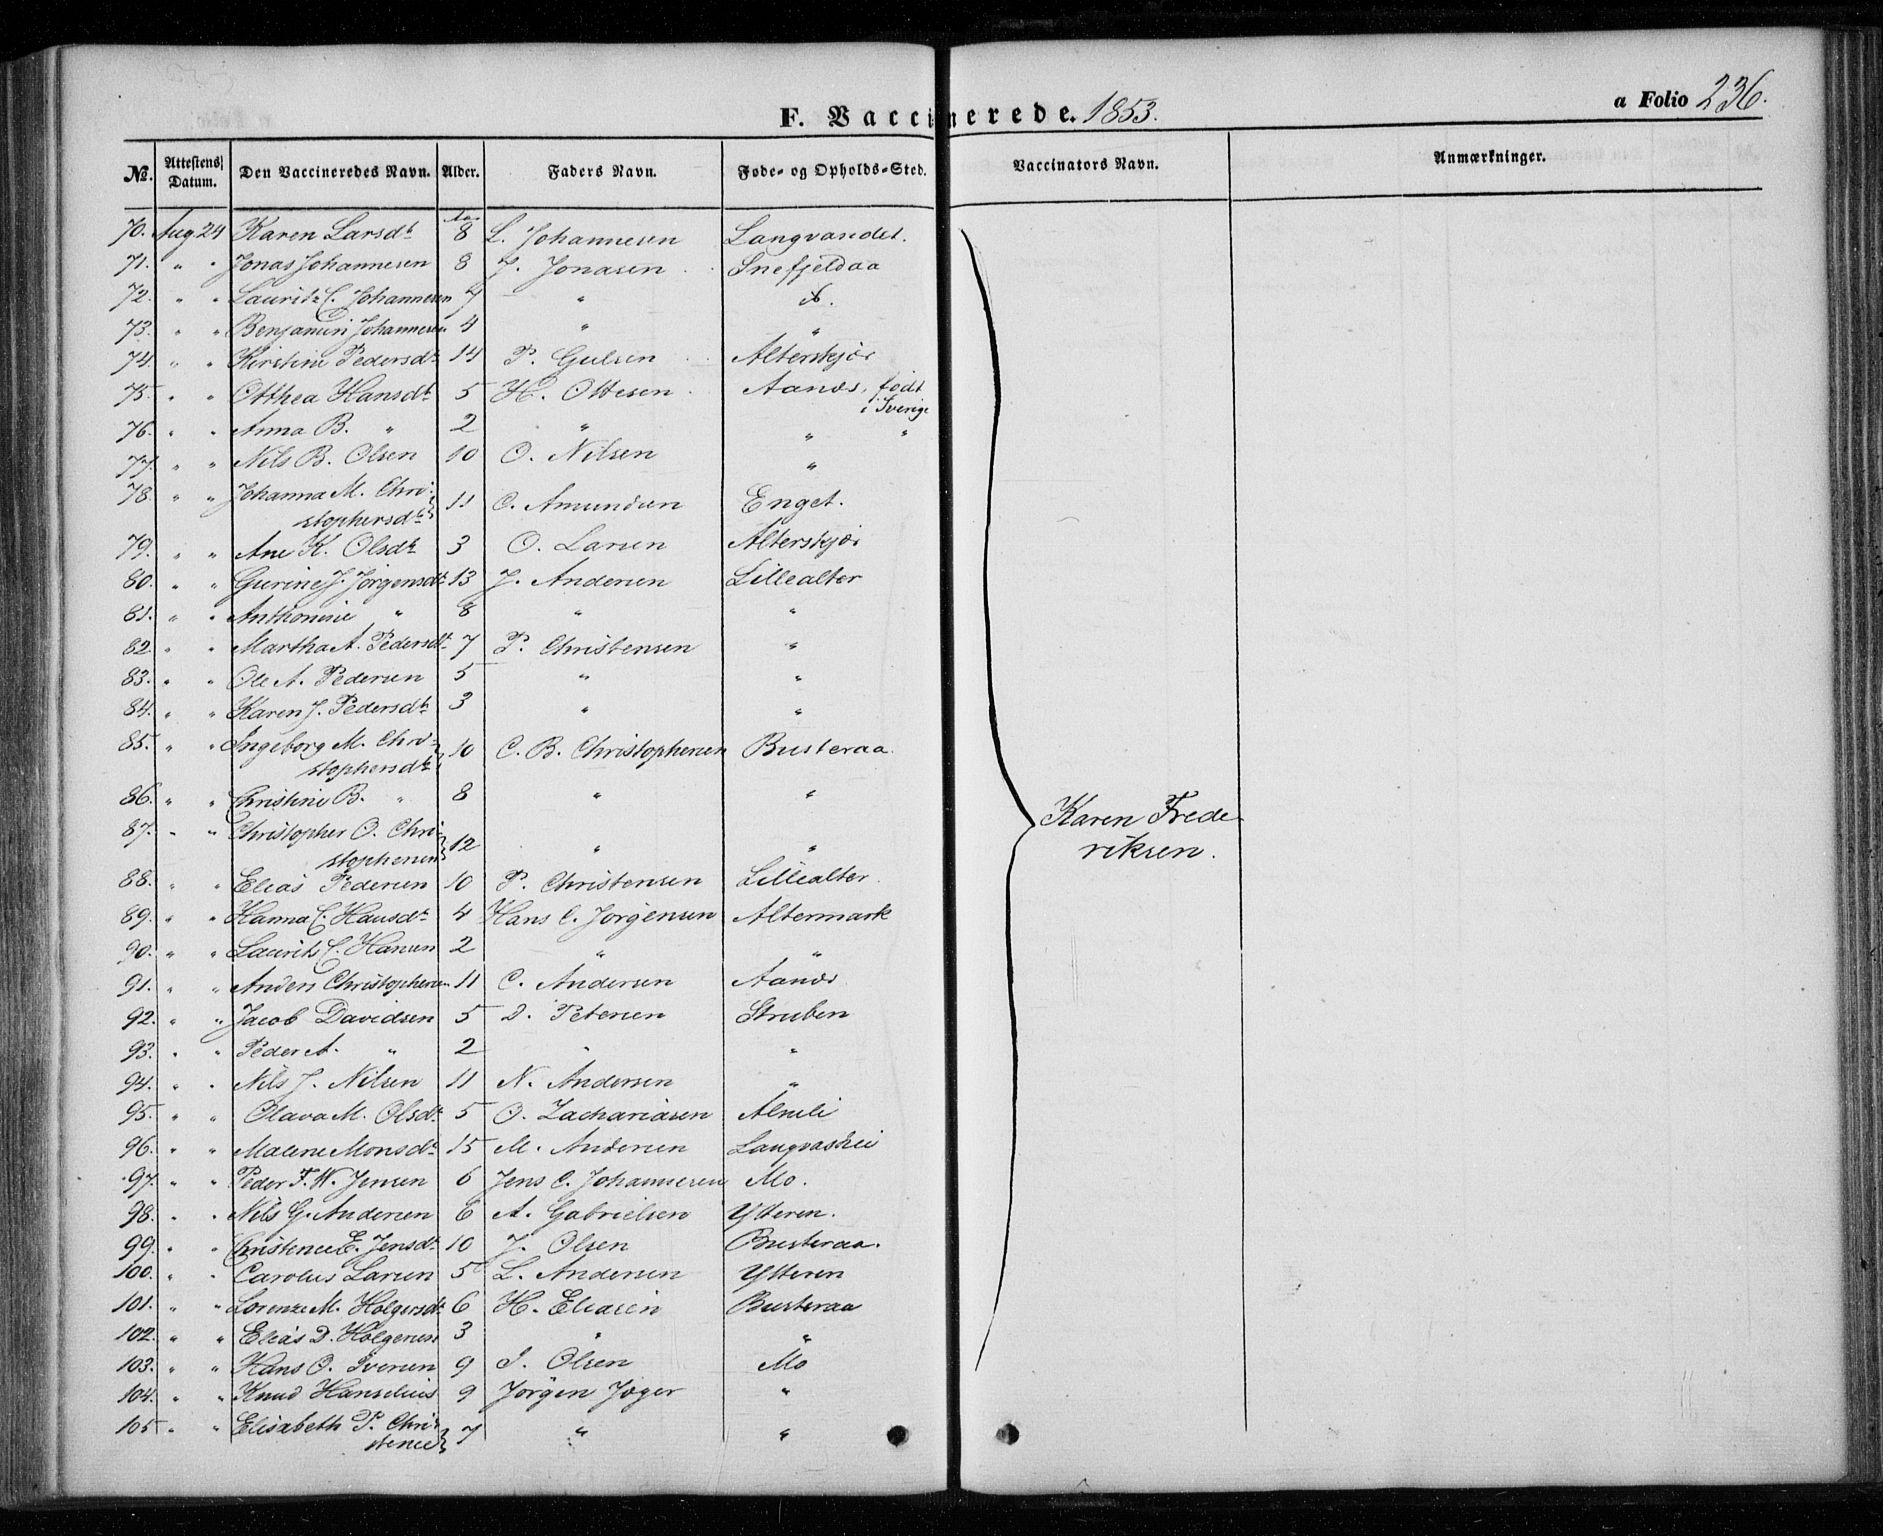 F. Vaccinerede. 1853.
a Folio 236.
No. Attestens Datum. Den Vaccineredes Navn. Alder. Faders Navn. Føde- og Opholds-Sted. Vaccinators Navn. Anmærkninger.
Aar
70. Aug. 24 Karen Larsdt 8 L. Johannesen Langvandet.
71. " " Jonas Johannesen 8 J. Jonasen Snefjeldaa
72. " " Lauritz C. Johannesen 7 " d.
73. " " Benjamin Johannesen 4 " "
74. " " Kirstine Pedersdt 14 P. Gulsen Alterskjær
75. " " Otthea Hansdt 5 H. Ottesen Aanæs, født
i Sverige
76. " " Anna B. " 2 " " "
77. " " Nils B. Olsen 10 O. Nilsen "
78. " " Johanna M. Chri-
stophersdt 11 C. Amundsen Enget.
79. " " Ane K. Olsdt 3 O. Larsen Alterskjær
80. " " Gurine J. Jørgensdt 13 J. Andersen Lillealter
81. " " Anthonine " 8 " "
82. " " Martha A. Pedersdt 7 P. Christensen "
83. " " Ole A. Pedersen 5 " "
84. " " Karen J. Pedersdt 3 " "
85. " " Ingeborg M. Chri-
stophersdt 10 C. B. Christophersen Busteraa
86. " " Christine B. " 8 " "
87. " " Christopher O. Chri-
stophersen 12 " "
Karen Frede-
riksen.
88. " " Elias Pedersen 10 P. Christensen Lillealter
89. " " Hanna C. Hansdt 4 Hans C. Jørgensen Altermark
90. " " Laurits C. Hansen 2 " "
91. " " Anders Christophersen 11 C. Andersen Aanæs
92. " " Jacob Davidsen 5 D. Petersen Struben
93. " " Peder A. " 2 " "
94. " " Nils J. Nilsen 11 N. Andersen "
95. " " Olava M. Olsdt 5 O. Zachariasen Alteli
96. " " Malene Monsdt 15 M. Andersen Langvashei
97. " " Peder F. W. Jensen 6 Jens C. Johannesen Mo.
98. " " Nils G. Andersen 6 A. Gabrielsen Ytteren.
99. " " Christence E. Jensdt 10 J. Olsen Busteraa.
100. " " Carolus Larsen 5 L. Andersen Ytteren
101. " " Lorenze M. Holgersdt 6 H. Eliasen Busteraa
102. " " Elias D. Holgersen 3 " "
103. " " Hans O. Iversen 9 I. Olsen Mo
104. " " Knud Hanselius 9 Jørgen Jæger "
105 " " Elisabeth P. Chri-
stence 7 " "